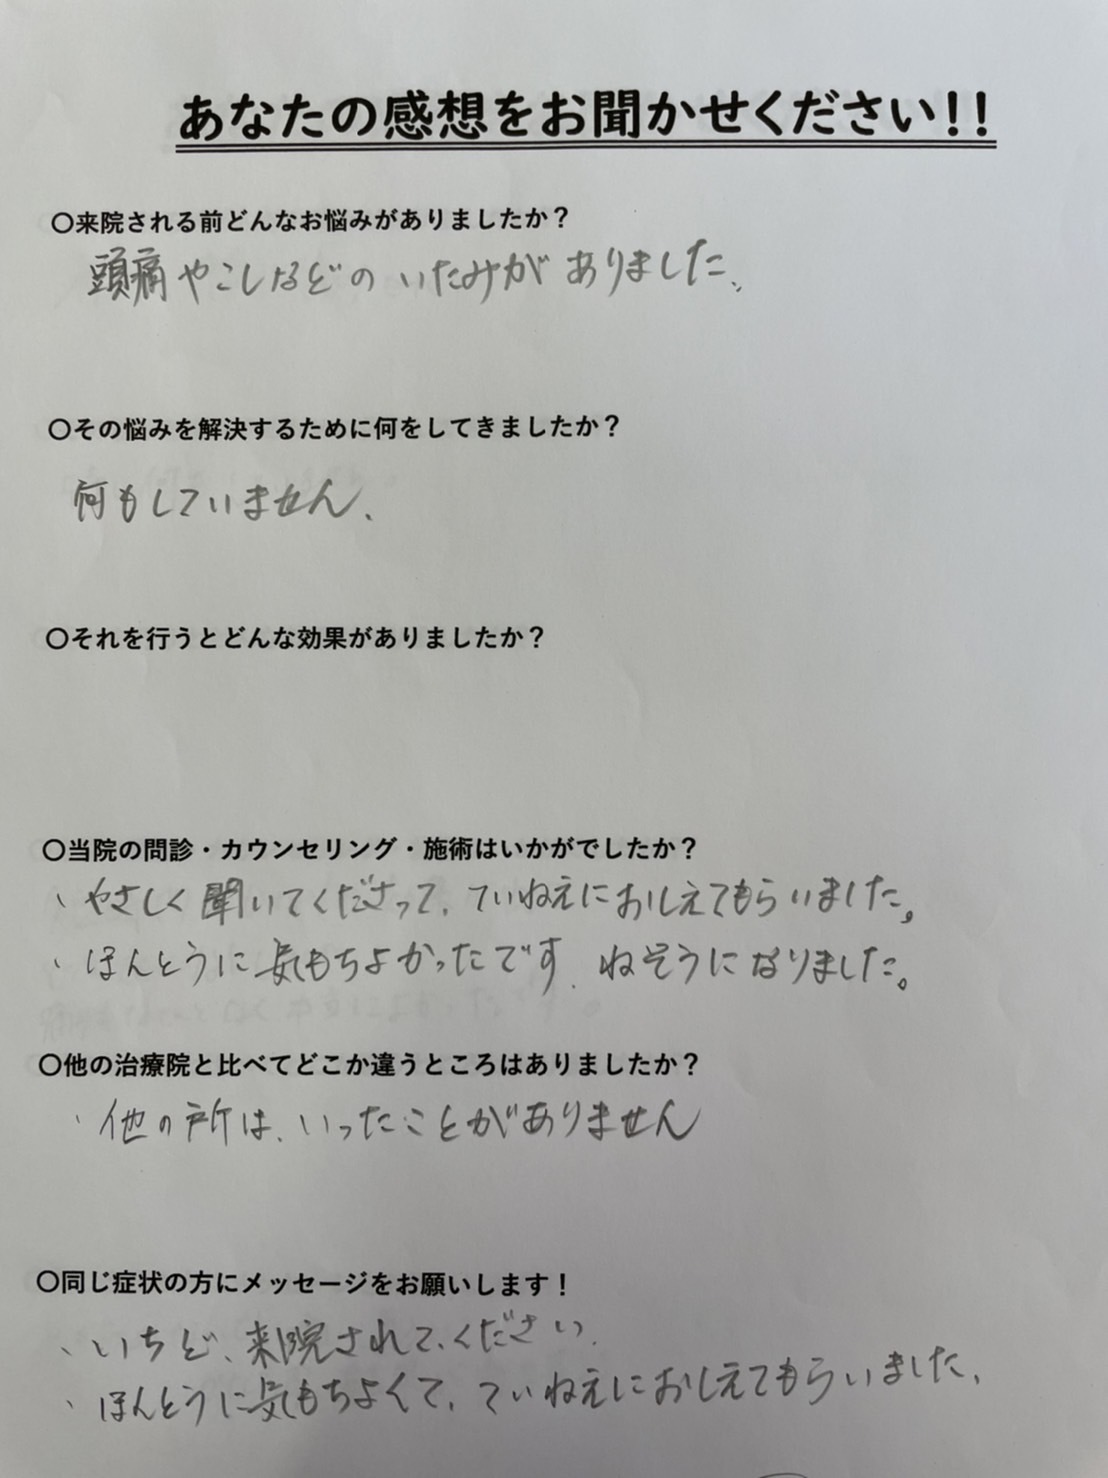 あなたの感想をお聞かせください!!
〇来院される前どんなお悩みがありましたか？
頭痛やこしなどのいたみがありました、
〇その悩みを解決するために何をしてきましたか？
何もしていません、
〇それを行うとどんな効果がありましたか？
〇当院の問診・カウンセリング・施術はいかがでしたか？
、やさしく聞いてくださって、ていねえにおしえてもらいました。
、ほんとうに気もちよかったです、ねそうになりました。
〇他の治療院と比べてどこか違うところはありましたか？
、他の所は、いったことがありません
〇同じ症状の方にメッセージをお願いします！
、いちど、来院されて、ください、
、ほんとうに気もちよくて、ていねえにおしえてもらいました、